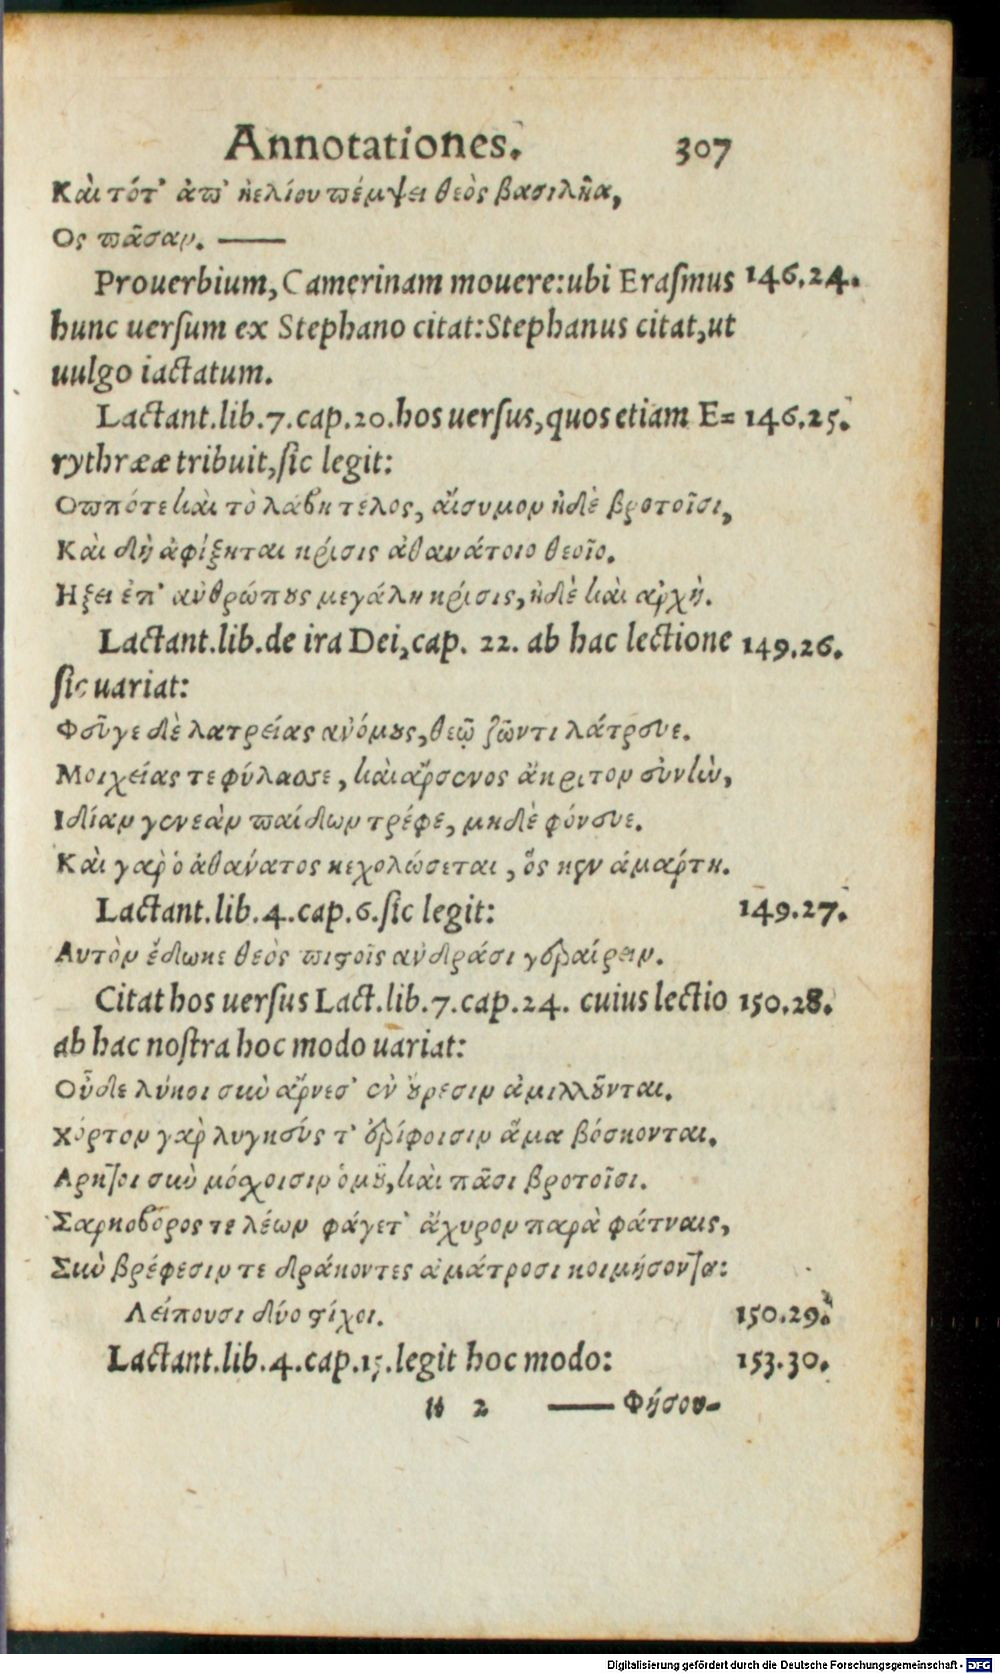 Annotationes. 307
Καὶ τότ' ἀπ' ἠελίου πέμψει θεὸς βασιλῆα,
Ος πᾶσαν. ——
Prouerbium, Camerinam mouere: ubi Erasmus 146.24.
hunc uersum ex Stephano citat: Stephanus citat, ut
uulgo iactatum.
Lactant. lib. 7. cap. 20. hos uersus, quos etiam E= 146.25.
rythrææ tribuit, sic legit:
Οππότε καὶ τὸ λάβη τέλος, αἴσυμον ἠδὲ βροτοῖσι,
Καὶ δὴ ἀφίξηται κρίσις ἀθανάτοιο θεοῖο.
Ηξει ἐπ' ἀνθρώπους μεγάλη κρίσις, ἠδὲ καὶ ἀρχή.
Lactant. lib. de ira Dei, cap. 22. ab hac lectione 149.26.
sic uariat:
Φεῦγε δὲ λατρείας ἀνόμους, θεῷ ζῶντι λάτρευε.
Μοιχείας τε φύλασσε, καὶ ἄρσενος ἄκριτον εὐνὴν,
Ιδίαν γενεὰν παίδων τρέφε, μηδὲ φόνευε.
Καὶ γὰρ ὁ ἀθάνατος κεχολώσεται, ὅς κεν ἁμάρτη.
Lactant. lib. 4. cap. 6. sic legit: 149.27.
Αυτὸν ἔδωκε θεὸς πιστοῖς ἀνδράσι γεραίρειν.
Citat hos uersus Lact. lib. 7. cap. 24. cuius lectio 150.28.
ab hac nostra hoc modo uariat:
Οὖδε λύκοι σὺν ἄρνεσ' ἐν οὔρεσιν ἀμιλλοῦνται.
Χόρτον γὰρ λυγκεύς τ' ἐρίφοισιν ἅμα βόσκονται.
Αρκτοι σὺν μόσχοισιν ὁμοῦ, καὶ πᾶσι βροτοῖσι.
Σαρκοβόρος τε λέων φάγετ' ἄχυρον παρὰ φάτναις,
Σὺν βρέφεσιν τε δράκοντες ἀμάτροσι κοιμήσονται:
Λείπουσι δύο στίχοι. 150.29.
Lactant. lib. 4. cap. 15. legit hoc modo: 153.30.
u 2 —— Φήσου-
Digitalisierung gefördert durch die Deutsche Forschungsgemeinschaft - DFG